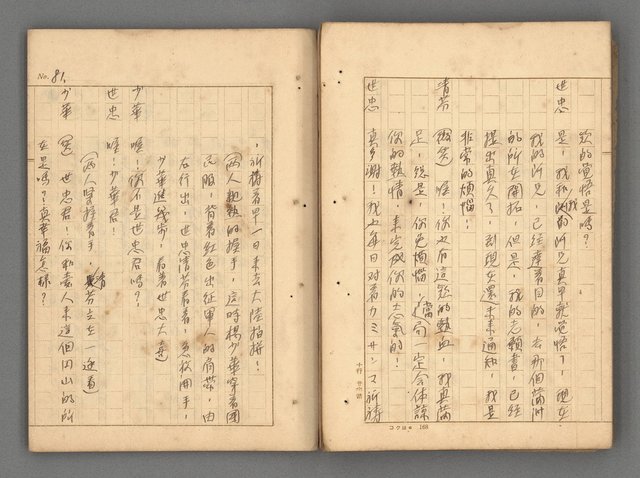 欵的覺悟是嗎？
世忠 是，我和我的所見真早就覺悟了，現在
我的所見，已經達着目的，去那個滿洲
的所在開拓，但是，我的志願書，已經
提出真久了，到現在還未來通知，我是
非常的煩惱。
清芳 微笑 喔！你也有這欵的熱血，我真滿
足，總是，你免煩惱，當局一定会体諒
你的熱情，來完成你的志氣的！
世忠 真多謝！我每日对着カミサンマ祈祷
コクヨ 168
No. 81.
，祈祷着早一日来去大陸拍拼！
（兩人 的握手，這時楊少華穿着國
民服，背着紅色出征軍人的肩帶，由
右行出，世忠清芳看着，急放開手，
少華進幾步，看着世忠大声
少華 喔！你不是世忠君嗎？
世忠 喔！少華君！
（兩人緊握着手，清芳立在一邊看）
少華 （笑）世忠君！你和素人来這個円山的所
在是嗎？！真幸福怎樣？